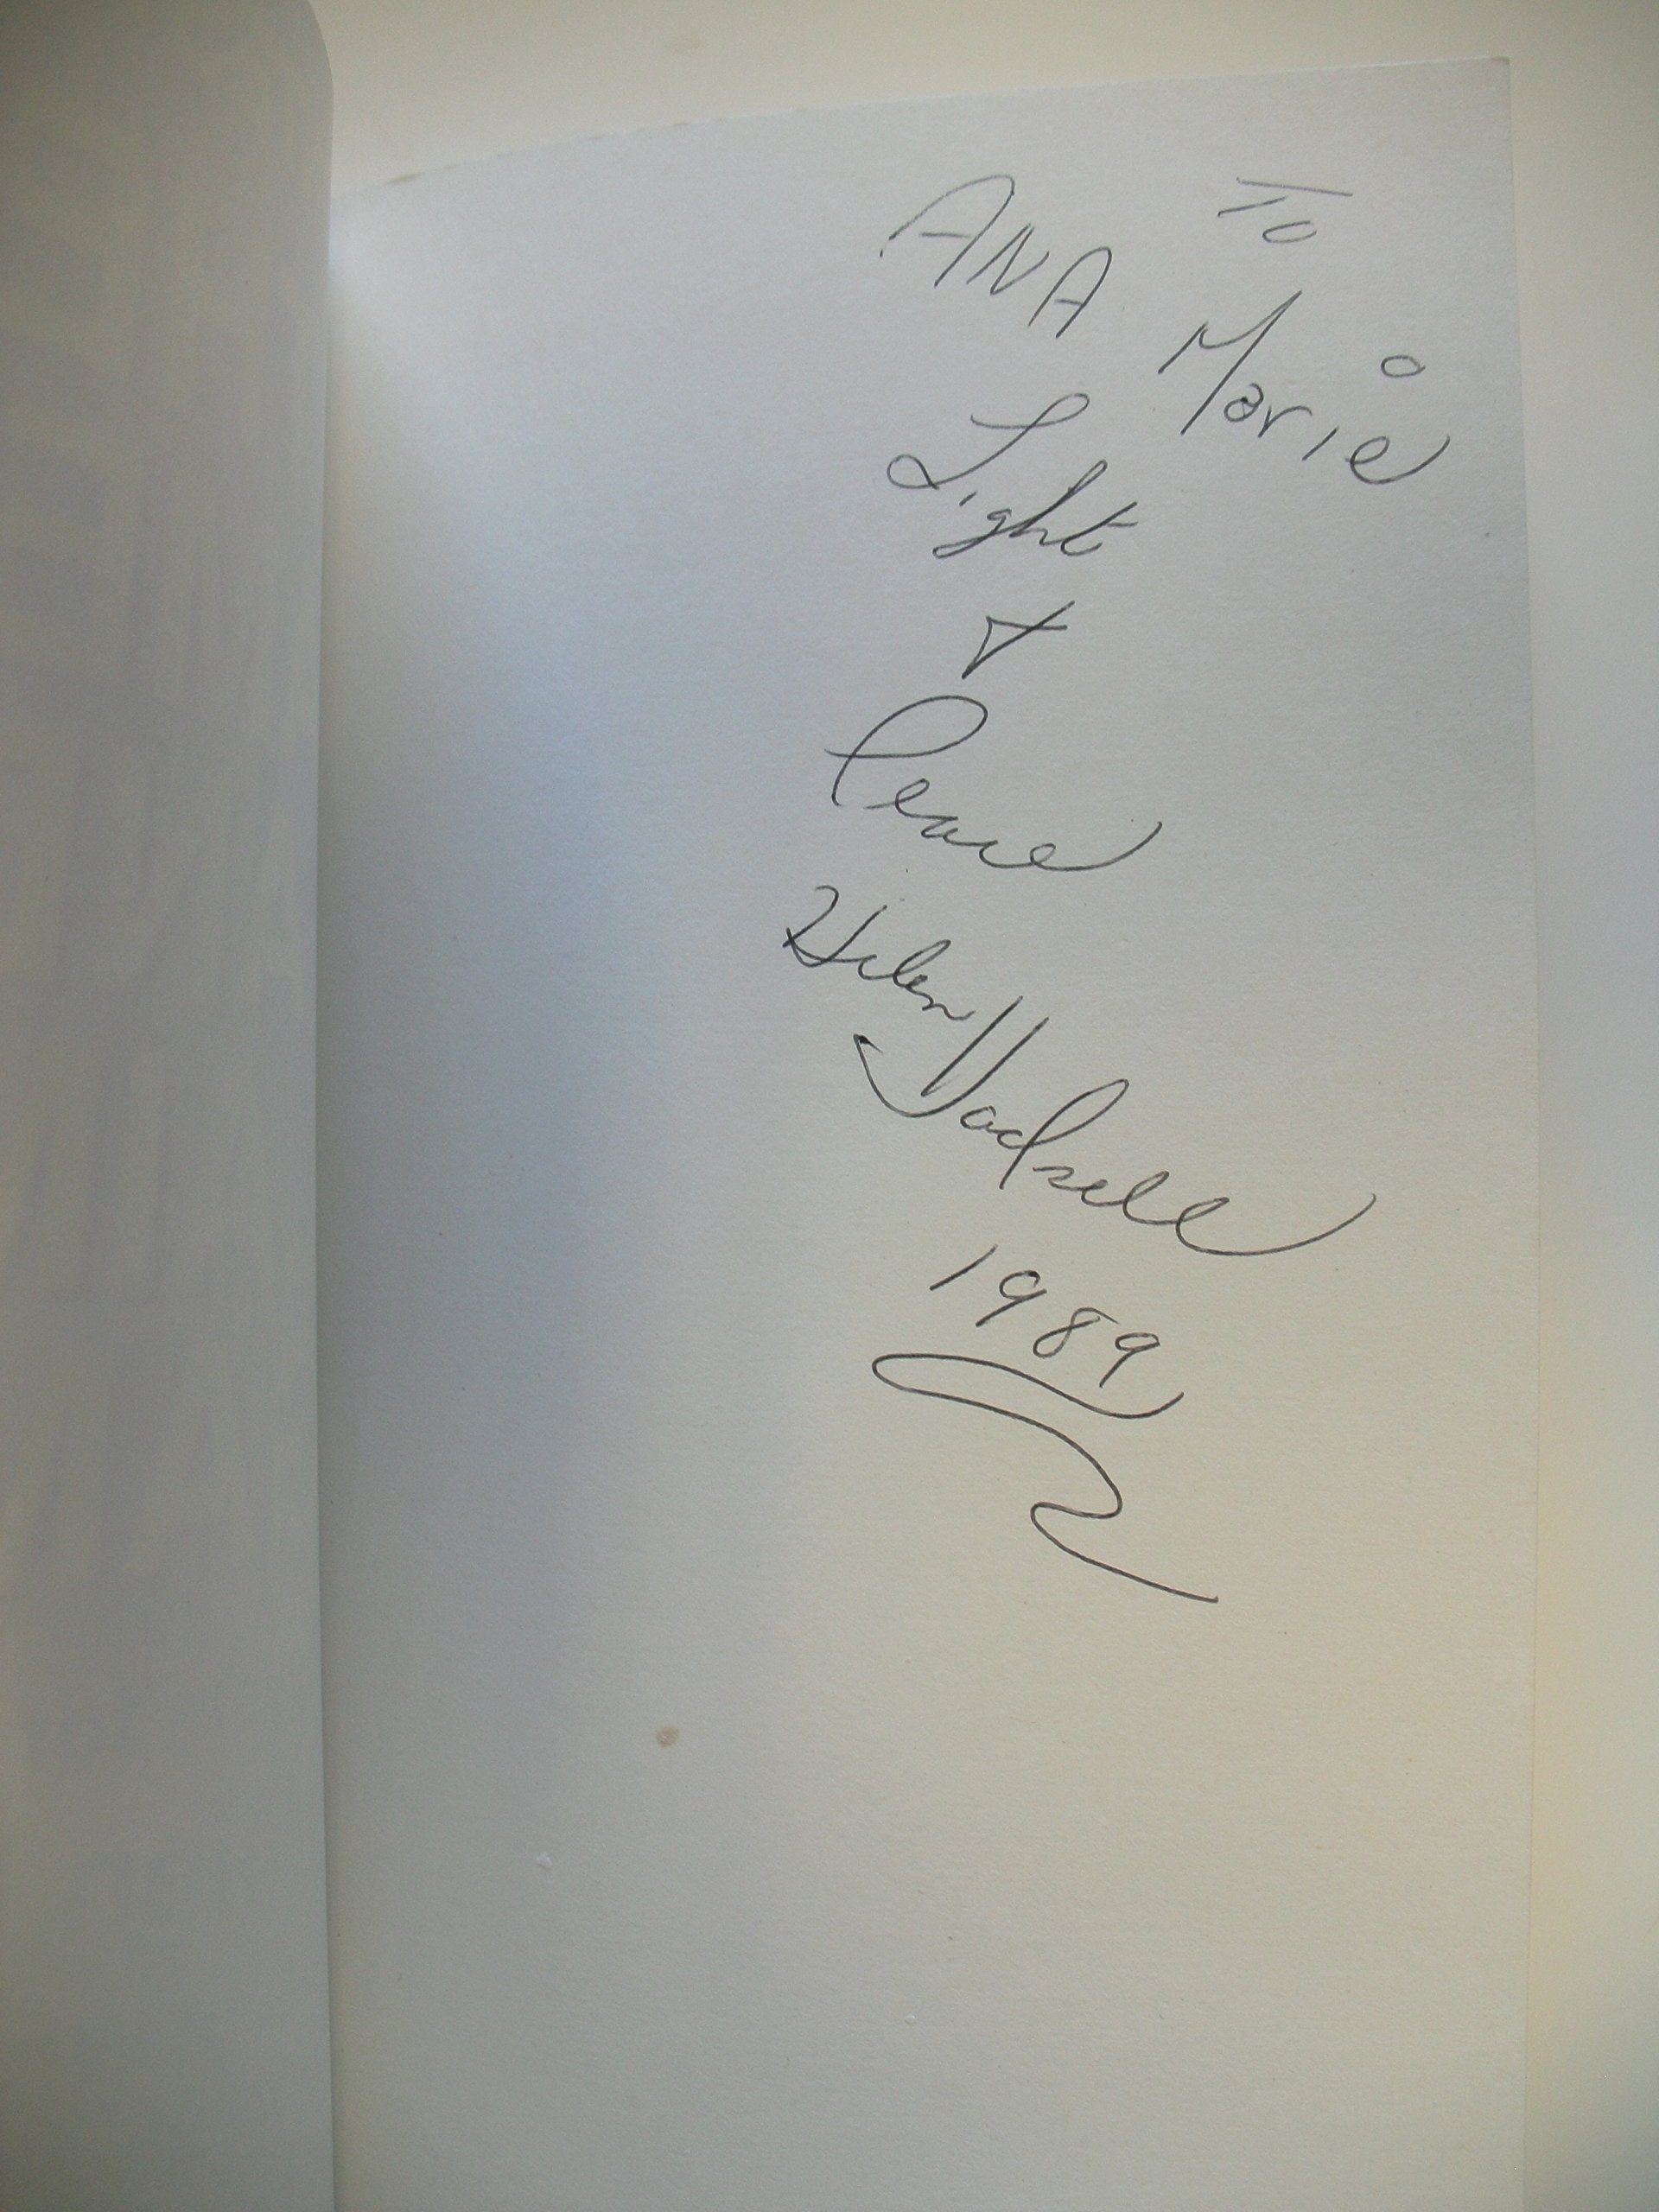 To
ANA Marie
Light
+
Peace
Helen Hadsell
1989